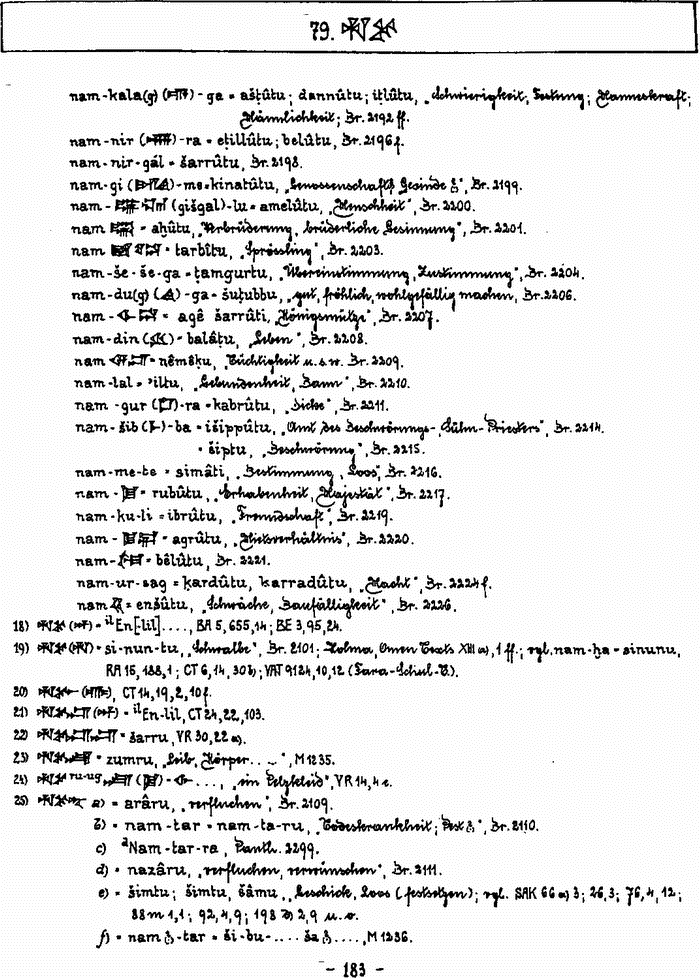 79. 𒉆
nam-kala(g) ()-ga = ašṭûtu; dannûtu; iṭlûtu, „Schwierigkeit, Festung; Manneskraft;
Männlichkeit; Br. 2192 ff.
nam-nir ()-ra = eṭillûtu; belûtu, Br. 2196 f.
nam-nir-gál = šarrûtu, Br. 2198.
nam-gi ()-me = kinatûtu, „Genossenschaft, Gesinde", Br. 2199.
nam- (gišgal)-lu = amelûtu, „Menschheit", Br. 2200.
nam = aḫûtu, „Verbrüderung, brüderliche Gesinnung", Br. 2201.
nam = tarbîtu, „Sprössling", Br. 2203.
nam-še-še-ga = ṭamgurtu, „Übereinstimmung, Zustimmung", Br. 2204.
nam-du(g) ()-ga = šuṭubbu, „gut, fröhlich, wohlgefällig machen, Br. 2206.
nam- = agê šarrûti, „Königsmütze", Br. 2207.
nam-din () = balâṭu, „Leben", Br. 2208.
nam = nêmêḳu, „Tüchtigkeit u.s.w. Br. 2209.
nam-lal = 'iltu, „Gebundenheit, Bann", Br. 2210.
nam-gur ()-ra = kabrûtu, „Dicke", Br. 2211.
nam-šib ()-ba = išippûtu, „Amt des Beschwörungs-, Sühn-Priesters", Br. 2214.
= šiptu, „Beschwörung", Br. 2215.
nam-me-te = simâti, „Bestimmung, Loos", Br. 2216.
nam- = rubûtu, „Erhabenheit, Majestät", Br. 2217.
nam-ku-li = ibrûtu, „Freundschaft", Br. 2219.
nam- = agrûtu, „Mietsverhältnis", Br. 2220.
nam- = bêlûtu, Br. 2221.
nam-ur-sag = ḳardûtu, ḳarradûtu, „Macht", Br. 2224 f.
nam = enšûtu, „Schwäche, Baufälligkeit", Br. 2226.
18) () = ilEn[-lil]...., BA 5, 655, 14; BE 3, 95, 24.
19) () = si-nun-tu, „Schwalbe", Br. 2101; Holma, Omen Texts XIII a), 1 ff.; vgl. nam-ḫa = sinunu,
RA 15, 188, 1; CT 6, 14, 30 b; VAT 9124, 10, 12 (Fara-Schul-T.).
20) (), CT 14, 19, 2, 10 f.
21) () = ilEn-lil, CT 24, 22, 103.
22) = šarru, VR 30, 22 a).
23) = zumru, „Leib, Körper....", M 1235.
24) ru-ug ()- ..., „ein Pelzkleid", VR 14, 4 c.
25) a) = arâru, „verfluchen", Br. 2109.
b) = nam-tar = nam-ta-ru, „Todeskrankheit; Pest", Br. 2110.
c) dNam-tar-ra, Panth. 2299.
d) = nazâru, „verfluchen, verwünschen", Br. 2111.
e) = šimtu; šimtu, šâmu, „Geschick, Loos (festsetzen); vgl. SAK 66 a) 3; 26, 3; 76, 4, 12;
88 m 1, 1; 92, 4, 9; 198 b) 2, 9 u. o.
f) = nam-tar = ši-bu-.... ša ...., M 1236.
- 183 -